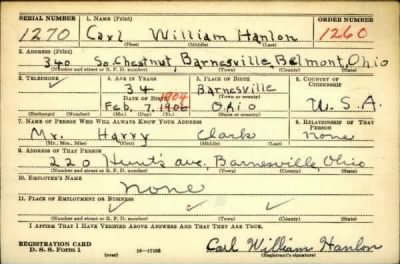 SERIAL NUMBER 1. NAME (Print) ORDER NUMBER
1270 Carl William Hanlon 1260
(First) (Middle) (Last)
2. ADDRESS (Print)
340 So. Chestnut, Barnesville, Belmont, Ohio
(Number and street or R. F. D. number) (Town) (County) (State)
3. TELEPHONE 4. AGE IN YEARS 5. PLACE OF BIRTH 6. COUNTRY OF CITIZENSHIP
34 Barnesville
DATE OF BIRTH 1904 (Town or county)
Feb. 7, 1906 Ohio U.S.A.
(Mo.) (Day) (Yr.) (State or country)
7. NAME OF PERSON WHO WILL ALWAYS KNOW YOUR ADDRESS 8. RELATIONSHIP OF THAT PERSON
Mr. Harry Clark none
(Mr., Mrs., Miss) (First) (Middle) (Last)
9. ADDRESS OF THAT PERSON
220 Hunts ave, Barnesville, Ohio
(Number and street or R. F. D. number) (Town) (County) (State)
10. EMPLOYER'S NAME
none
11. PLACE OF EMPLOYMENT OR BUSINESS
(Number and street or R. F. D. number) (Town) (County) (State)
I AFFIRM THAT I HAVE VERIFIED ABOVE ANSWERS AND THAT THEY ARE TRUE.
REGISTRATION CARD
D. S. S. Form 1 (over) Carl William Hanlon
(Registrant's signature)